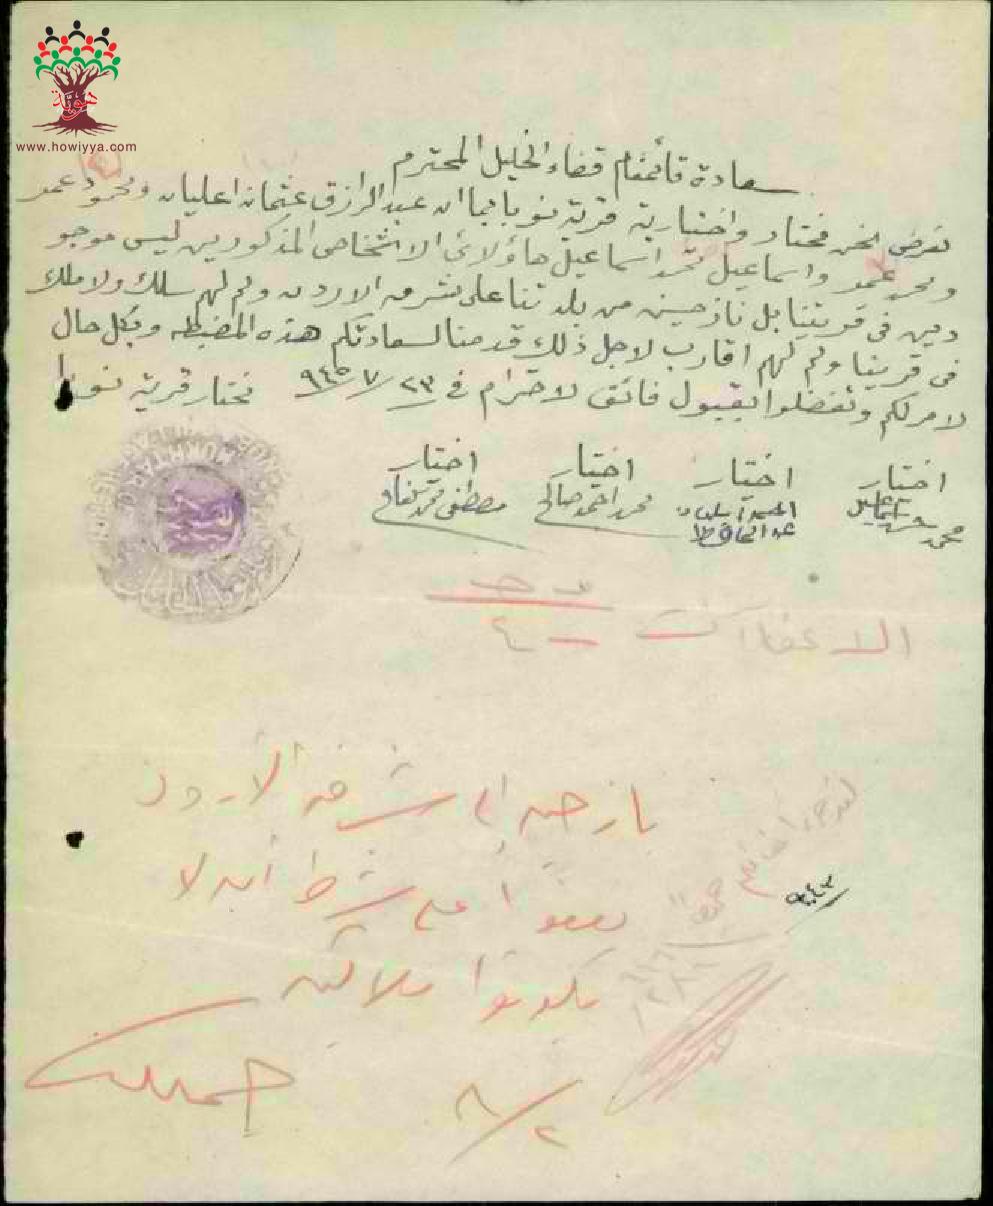 هوية
www.howiyya.com
سعادة قائمقام قضاء الخليل المحترم
نعرض نحن مختار واختيارية قرية نوبا بما ان عبد الرازق عثمان اعليان ومحمود عمر
ومحمد عمر واسماعيل محمد اسماعيل هاؤلائ الاشخاص المذكورين ليس موجو
دين في قريتنا بل نازحين من بلدتنا على شرق الاردن ولم لهم سلك ولا ملك
في قريتنا ولم لهم اقارب لاجل ذلك قدمنا لسعادتكم هذه المضبطه وبكل حال
لامر لكم وتفضلوا بقبول فائق لاحترام في ٢٣/٧/٩٤٥ مختار قرية نوبا
اختيار اختيار اختيار اختيار
محمد اسماعيل عبد الحافظ محمد احمد صالح مصطفى محمد
MUKHTAR
الاعفاآت
٤
نازحين الى شرق الاردن
يعفوا على شرط ان لا
يكونوا ملاكين
٩٤٣
٢/٨